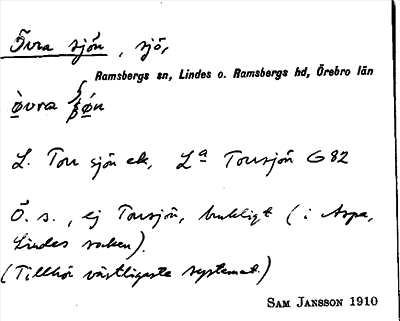 Övra sjön, sjö,
Ramsbergs sn, Lindes o. Ramsbergs hd, Örebro län
övra
L. Torrsjön ek, La Torrsjön G 82
Ö. s., ej Torrsjön, brukligt (i Aspa,
Lindes socken).
(Tillhör västligaste systemet.)
SAM JANSSON 1910